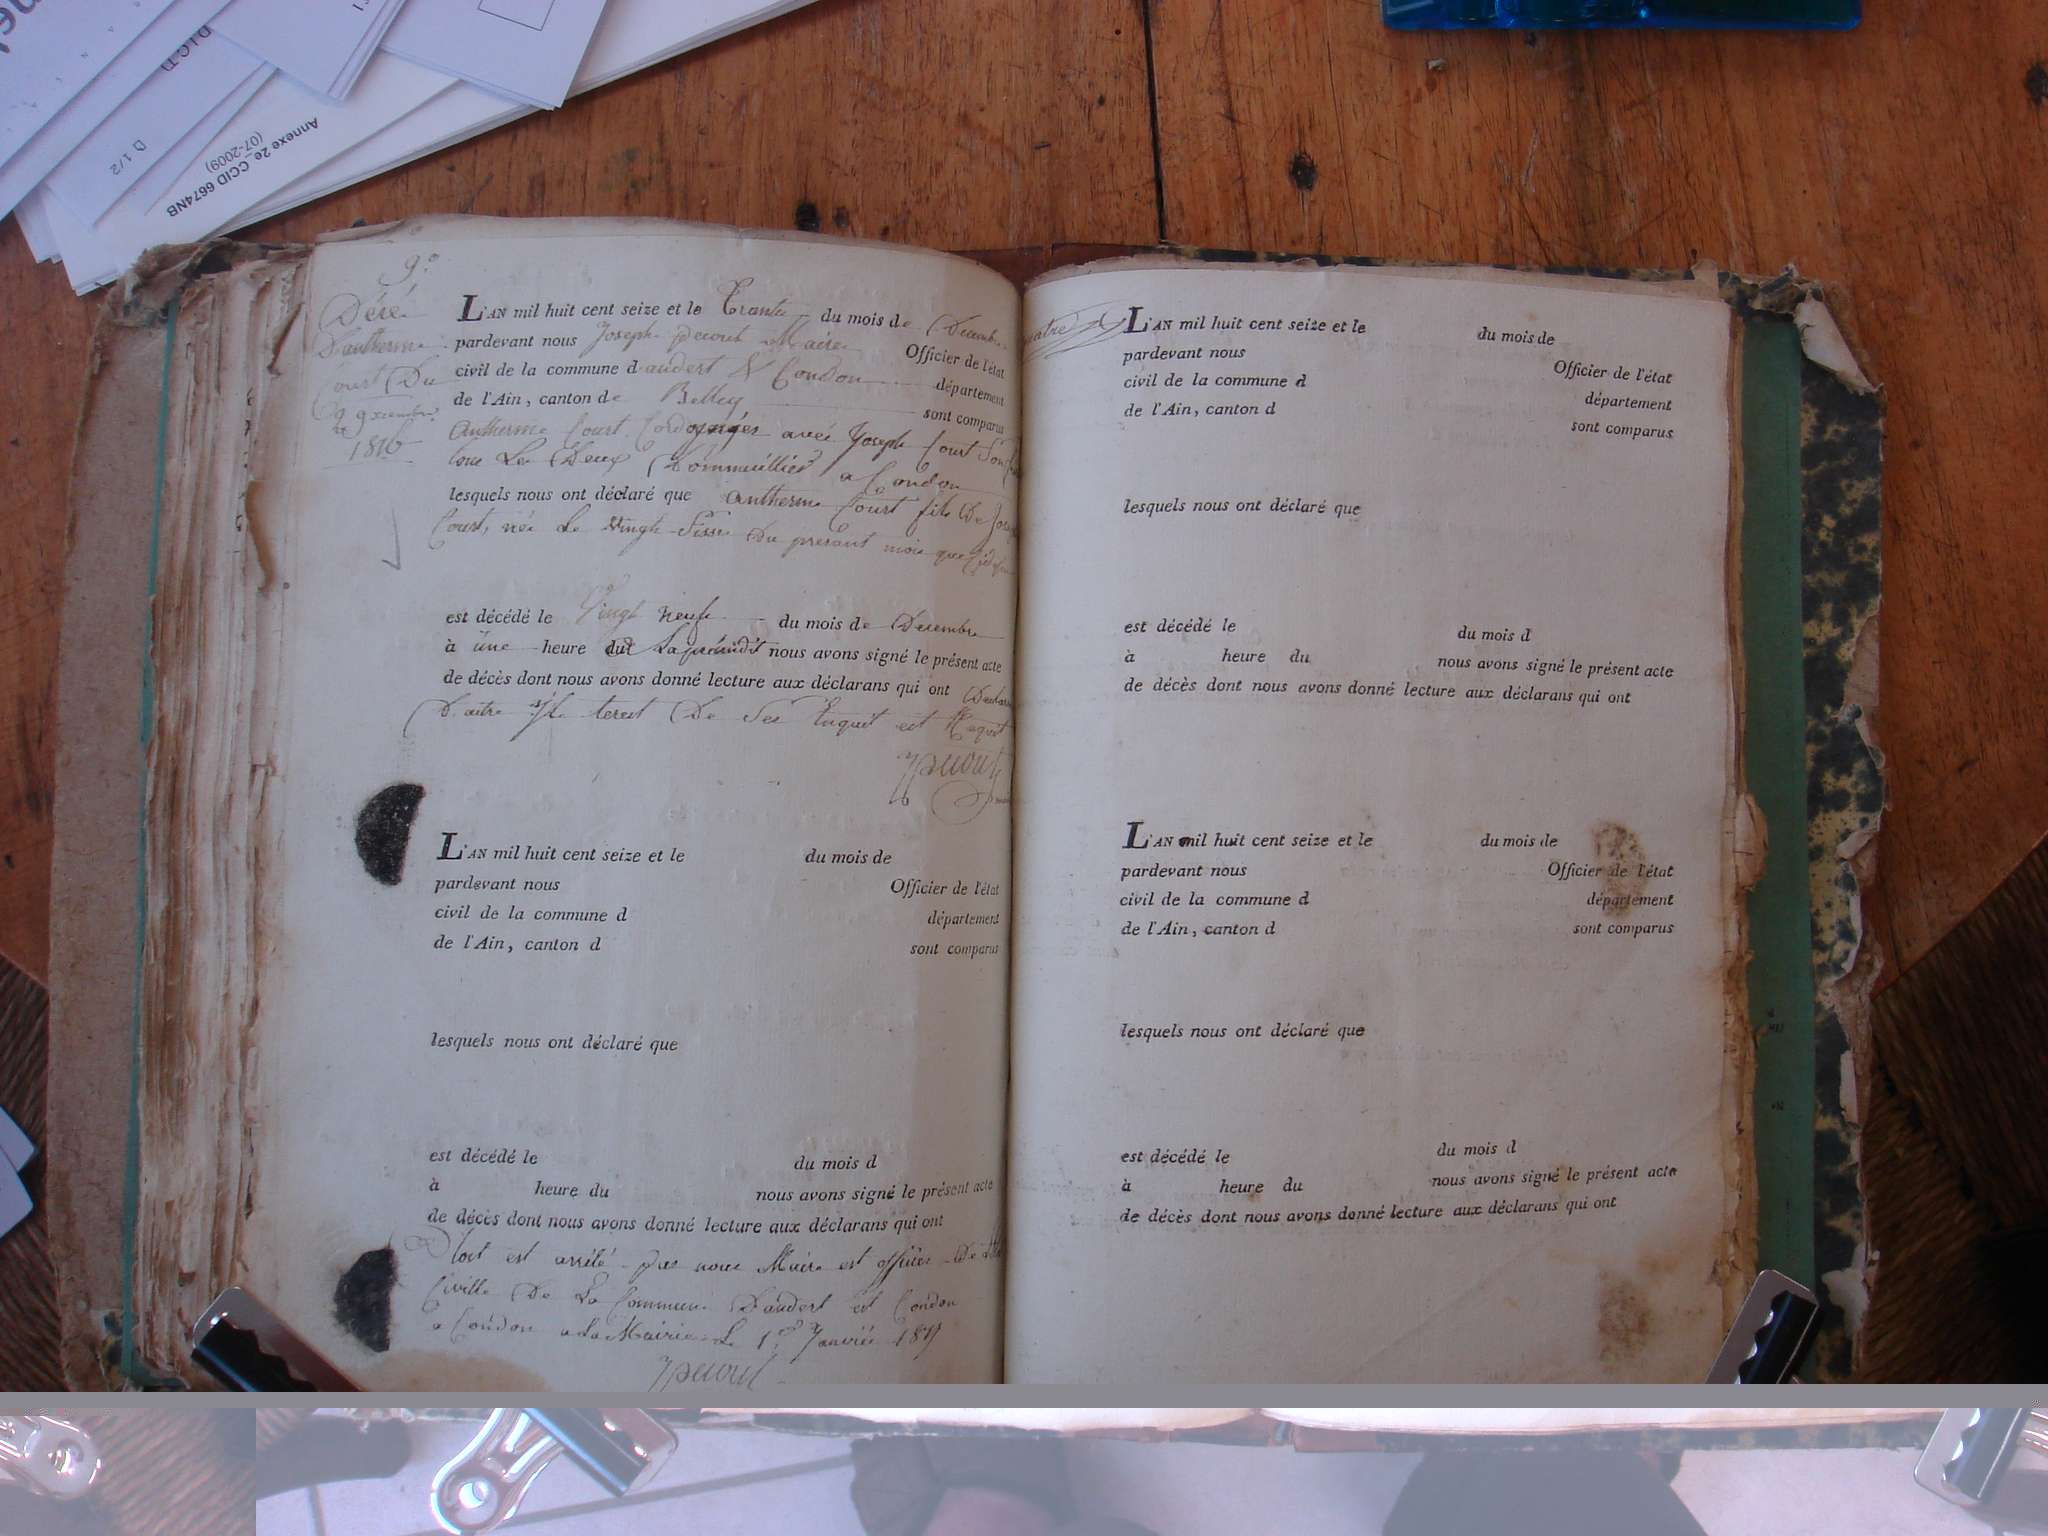 Annexe 2e CCID 6674NB
(07-2009)
D 1/2
9°
Décé
D'antherme
Court Du
29 Xcembre
1816
L'AN mil huit cent seize et le Trante du mois de Decembre
pardevant nous Joseph Decout Maire Officier de l'état
civil de la commune d'andert & Condon département
de l'Ain, canton de Belley sont comparus
Antherme Court Cordognier avec Joseph Court Son
tous Les Deux Domicilliés a Condon
lesquels nous ont déclaré que Antherme Court fils De Joseph
Court, née Le Vingt Sisse Du presant mois que
est décédé le Vingt neufe du mois de Decembre
à une heure du nous avons signé le présent acte
de décès dont nous avons donné lecture aux déclarans qui ont Declaré
De Ses Enquit est Requit
L'AN mil huit cent seize et le du mois de
pardevant nous Officier de l'état
civil de la commune d département
de l'Ain, canton d sont comparus
lesquels nous ont déclaré que
est décédé le du mois d
à heure du nous avons signé le présent acte
de décès dont nous avons donné lecture aux déclarans qui ont
Clost est arrêté par nous Maire est officier De
Civille De La Commune D'andert est Condon
a Condon a La Mairie Le 1er Janvier 1817
L'AN mil huit cent seize et le du mois de
pardevant nous Officier de l'état
civil de la commune d département
de l'Ain, canton d sont comparus
lesquels nous ont déclaré que
est décédé le du mois d
à heure du nous avons signé le présent acte
de décès dont nous avons donné lecture aux déclarans qui ont
L'AN mil huit cent seize et le du mois de
pardevant nous Officier de l'état
civil de la commune d département
de l'Ain, canton d sont comparus
lesquels nous ont déclaré que
est décédé le du mois d
à heure du nous avons signé le présent acte
de décès dont nous avons donné lecture aux déclarans qui ont